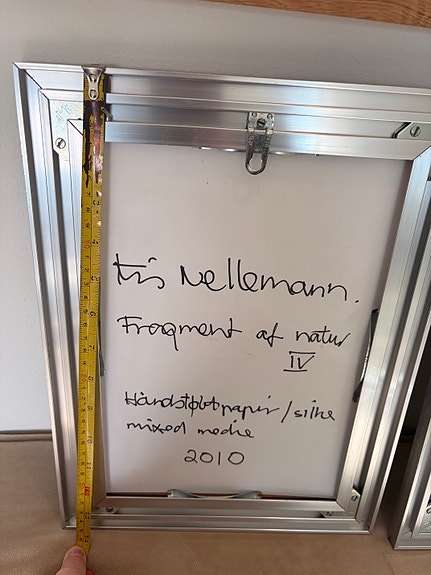 Kis Nellemann.
Fragment af natur
IV
Håndstøbt papir / silke
mixed medie
2010